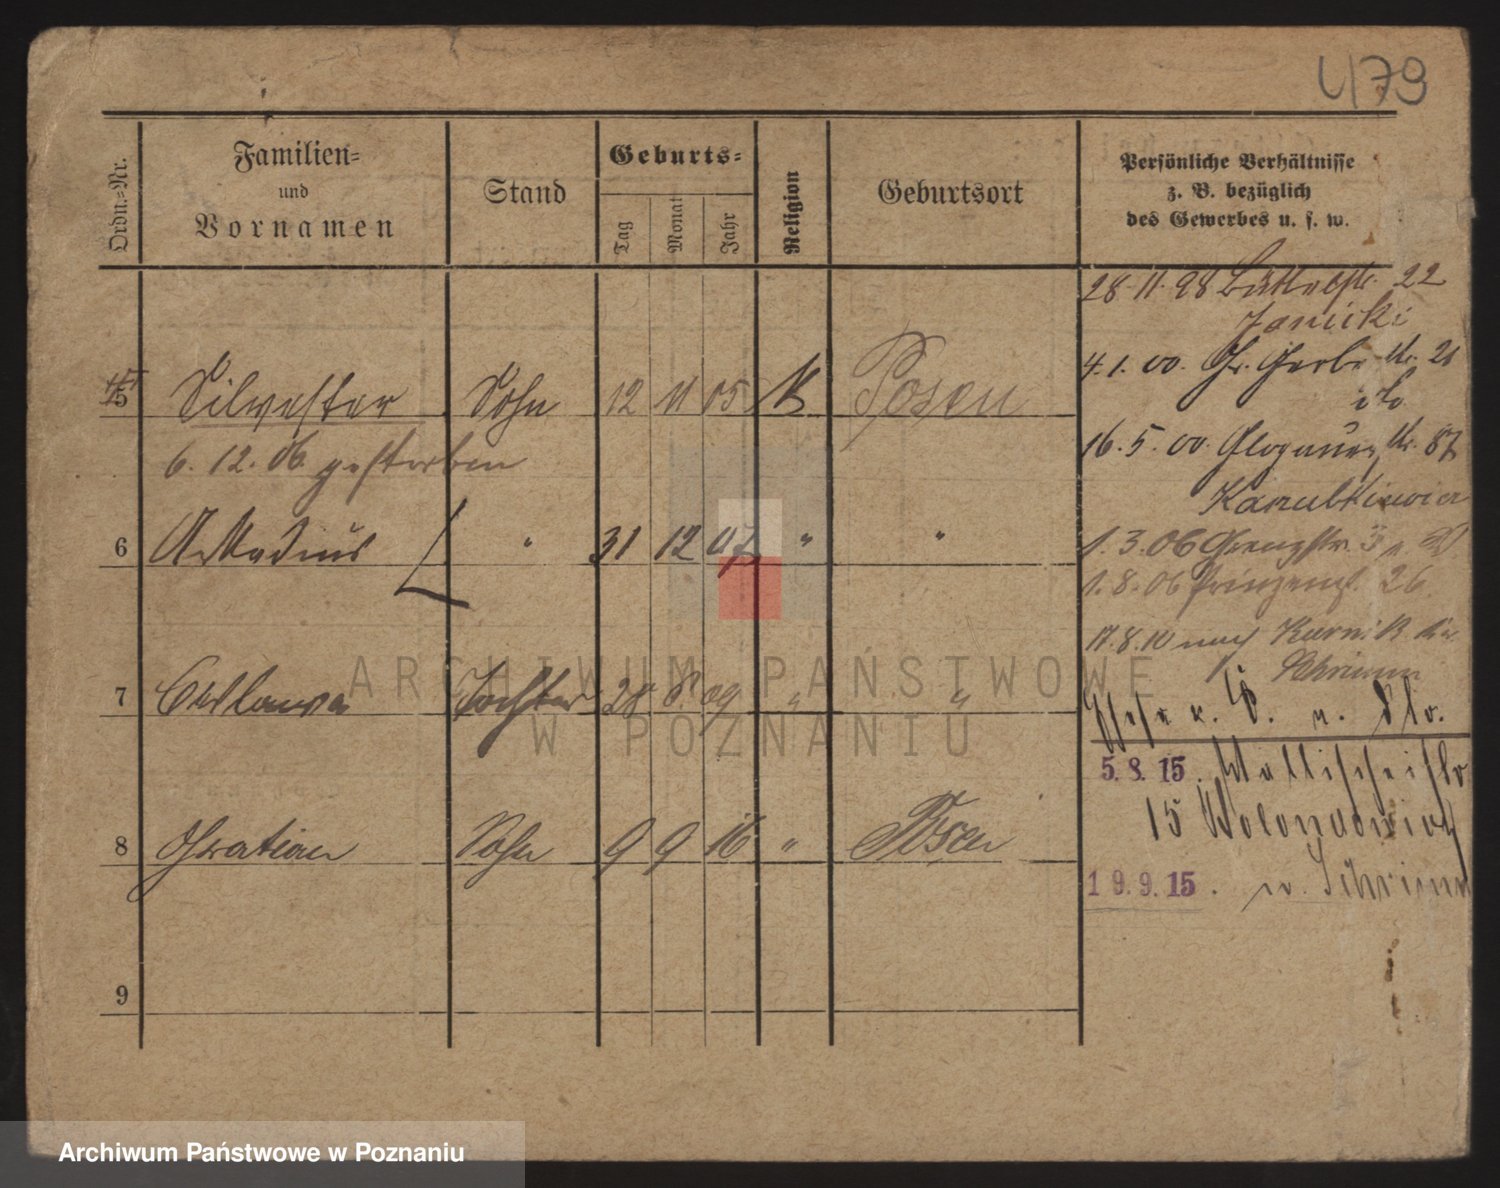 479
Ordn.=Nr.
Familien=
und
Vornamen
Stand
Geburts=
Tag
Monat
Jahr
Religion
Geburtsort
Persönliche Verhältnisse
z. B. bezüglich
des Gewerbes u. s. w.
28.11.98 Büttelstr. 22
Janicki
4.1.00. Gr. Gerberstr. 21
16.5.00. Glogauerstr. 87
1.3.06 Grenzstr.
1.8.06 Prinzenstr. 26.
17.8.10 nach Kurnik Kr.
Schrimm
5 Silvester Sohn 12 11 05 K Posen
6.12.06. gestorben
6 Arkadius " 31 12 07 " "
7 Tochter 28 09 " "
8 Gratian Sohn 9 9 16 " Posen
9
5.8.15. Wallischeistr
15
19.9.15. n. Schrimm
ARCHIWUM PAŃSTWOWE
W POZNANIU
Archiwum Państwowe w Poznaniu